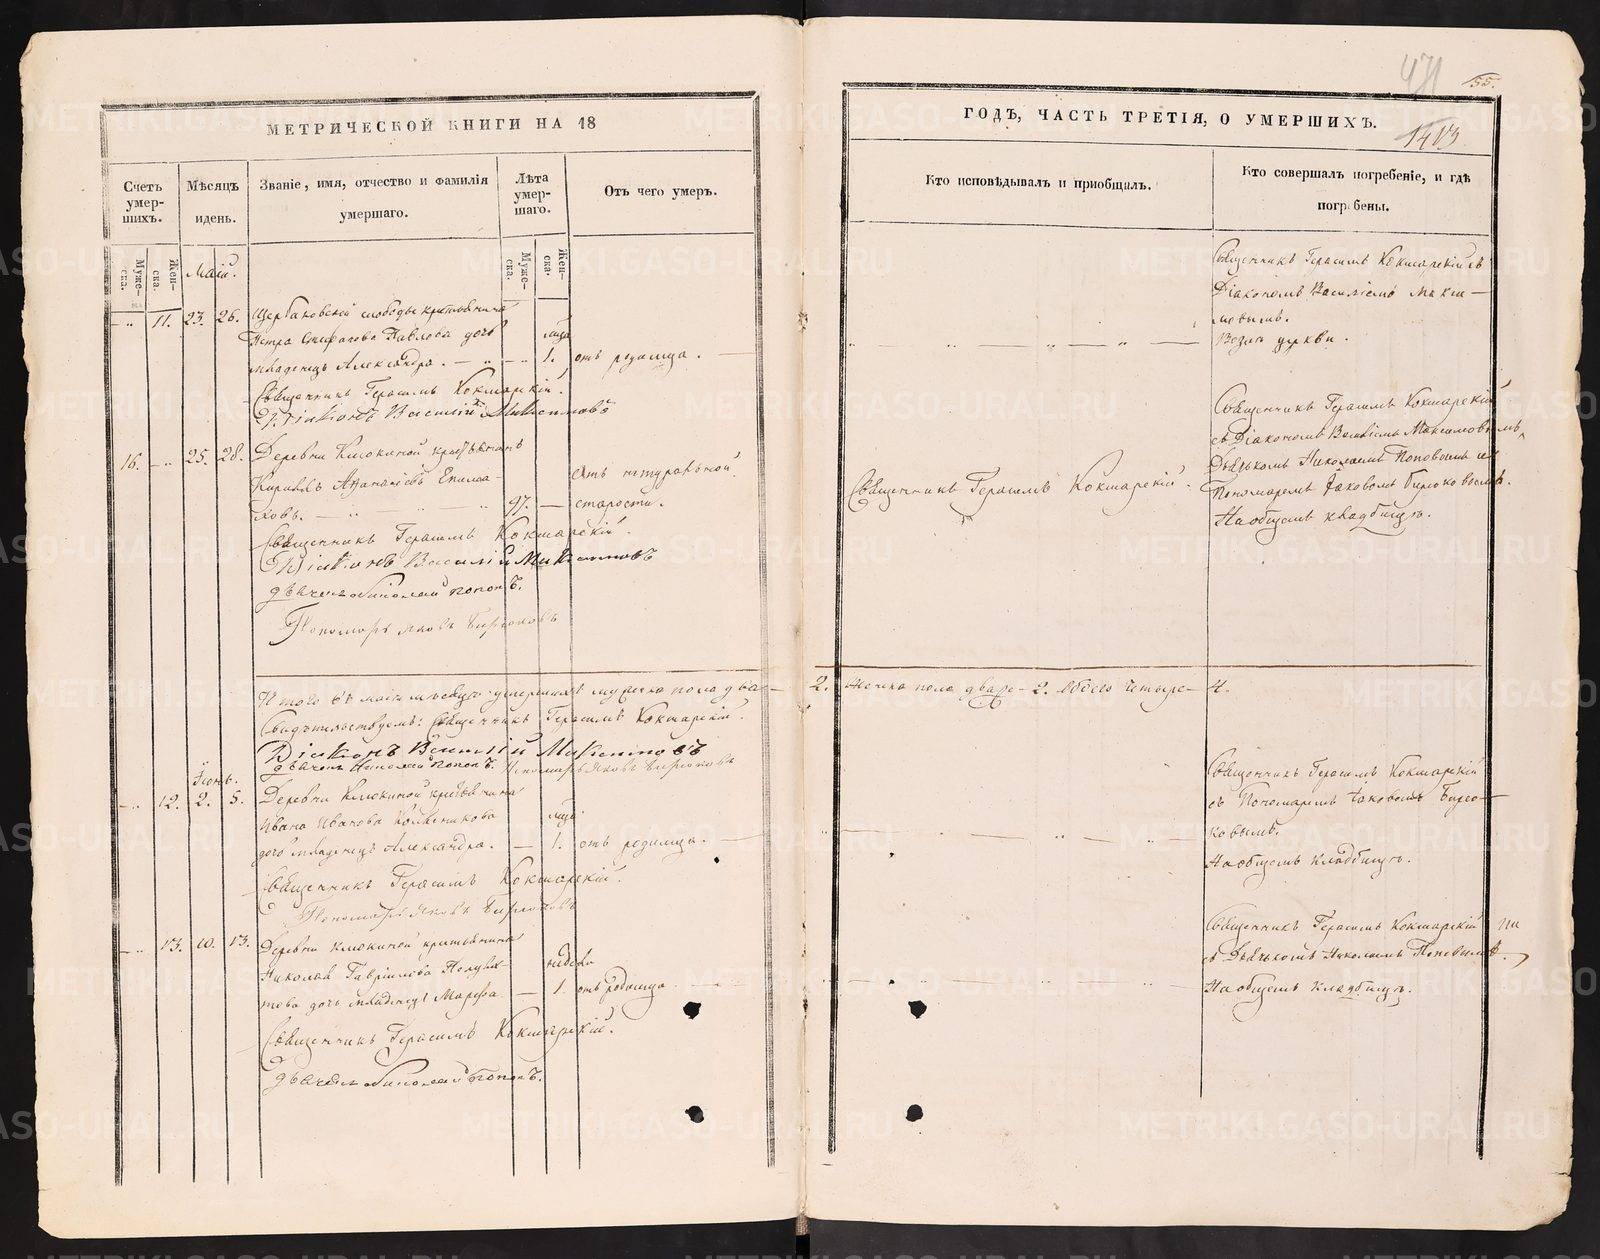 МЕТРИЧЕСКОЙ КНИГИ НА 18
Счетъ умер-шихъ.
Мѣсяцъ идень.
Званіе, имя, отчество и фамилія умершаго.
Лѣта умер-шаго.
Отъ чего умеръ.
Муже-ска.
Жен-ска.
Муже-ска.
Жен-ска.
Маій.
11. 23. 26. Щербаковской слободы крестьянина
Петра Павлова дочь
младенецъ Александра. 1. отъ родимца.
Священникъ Герасимъ Кокшарскій.
Діаконъ Василій
16. 25. 28. Деревни Клюкиной крестьянинъ
Кириллъ
97. отъ натуральной старости.
Священникъ Герасимъ Кокшарскій.
Діаконъ Василій
дьячекъ Николай Поповъ.
Пономарь Яковъ Бирюковъ
Итого въ маіи мѣсяцѣ умершихъ мужеска пола два—
Свидѣтельствуемъ: Священникъ Герасимъ Кокшарскій.
Діаконъ Василій
дьячекъ Николай Поповъ. Пономарь Яковъ Бирюковъ
Іюнь.
12. 2. 5. Деревни Клюкиной крестьянина
Ивана Иванова
дочь младенецъ Александра. 1. отъ родимца.
Священникъ Герасимъ Кокшарскій.
Пономарь Яковъ Бирюковъ
13. 10. 13. Деревни Клюкиной крестьянина
Николая Гаврилова
дочь младенецъ Марфа 1. отъ родимца
недели
Священникъ Герасимъ Кокшарскій.
дьячекъ Николай Поповъ.
471
55.
1413
ГОДЪ, ЧАСТЬ ТРЕТІЯ, О УМЕРШИХЪ.
Кто исповѣдывалъ и пріобщалъ.
Кто совершалъ погребеніе, и гдѣ погребены.
Священникъ Герасимъ Кокшарскій съ
Діакономъ Василіемъ
Возлѣ церкви.
Священникъ Герасимъ Кокшарскій.
Священникъ Герасимъ Кокшарскій
съ Діакономъ Василіемъ
Дьячкомъ Николаемъ Поповымъ и
Пономаремъ Іаковомъ Бирюковымъ.
На общемъ кладбищѣ.
2. Женска пола двѣ — 2. Обоего четыре — 4.
Священникъ Герасимъ Кокшарскій
съ Пономаремъ Іаковомъ Бирю-
ковымъ.
На общемъ кладбищѣ.
Священникъ Герасимъ Кокшарскій
съ Дьячкомъ Николаемъ Поповымъ.
На общемъ кладбищѣ.
METRIKI.GASO-URAL.RU